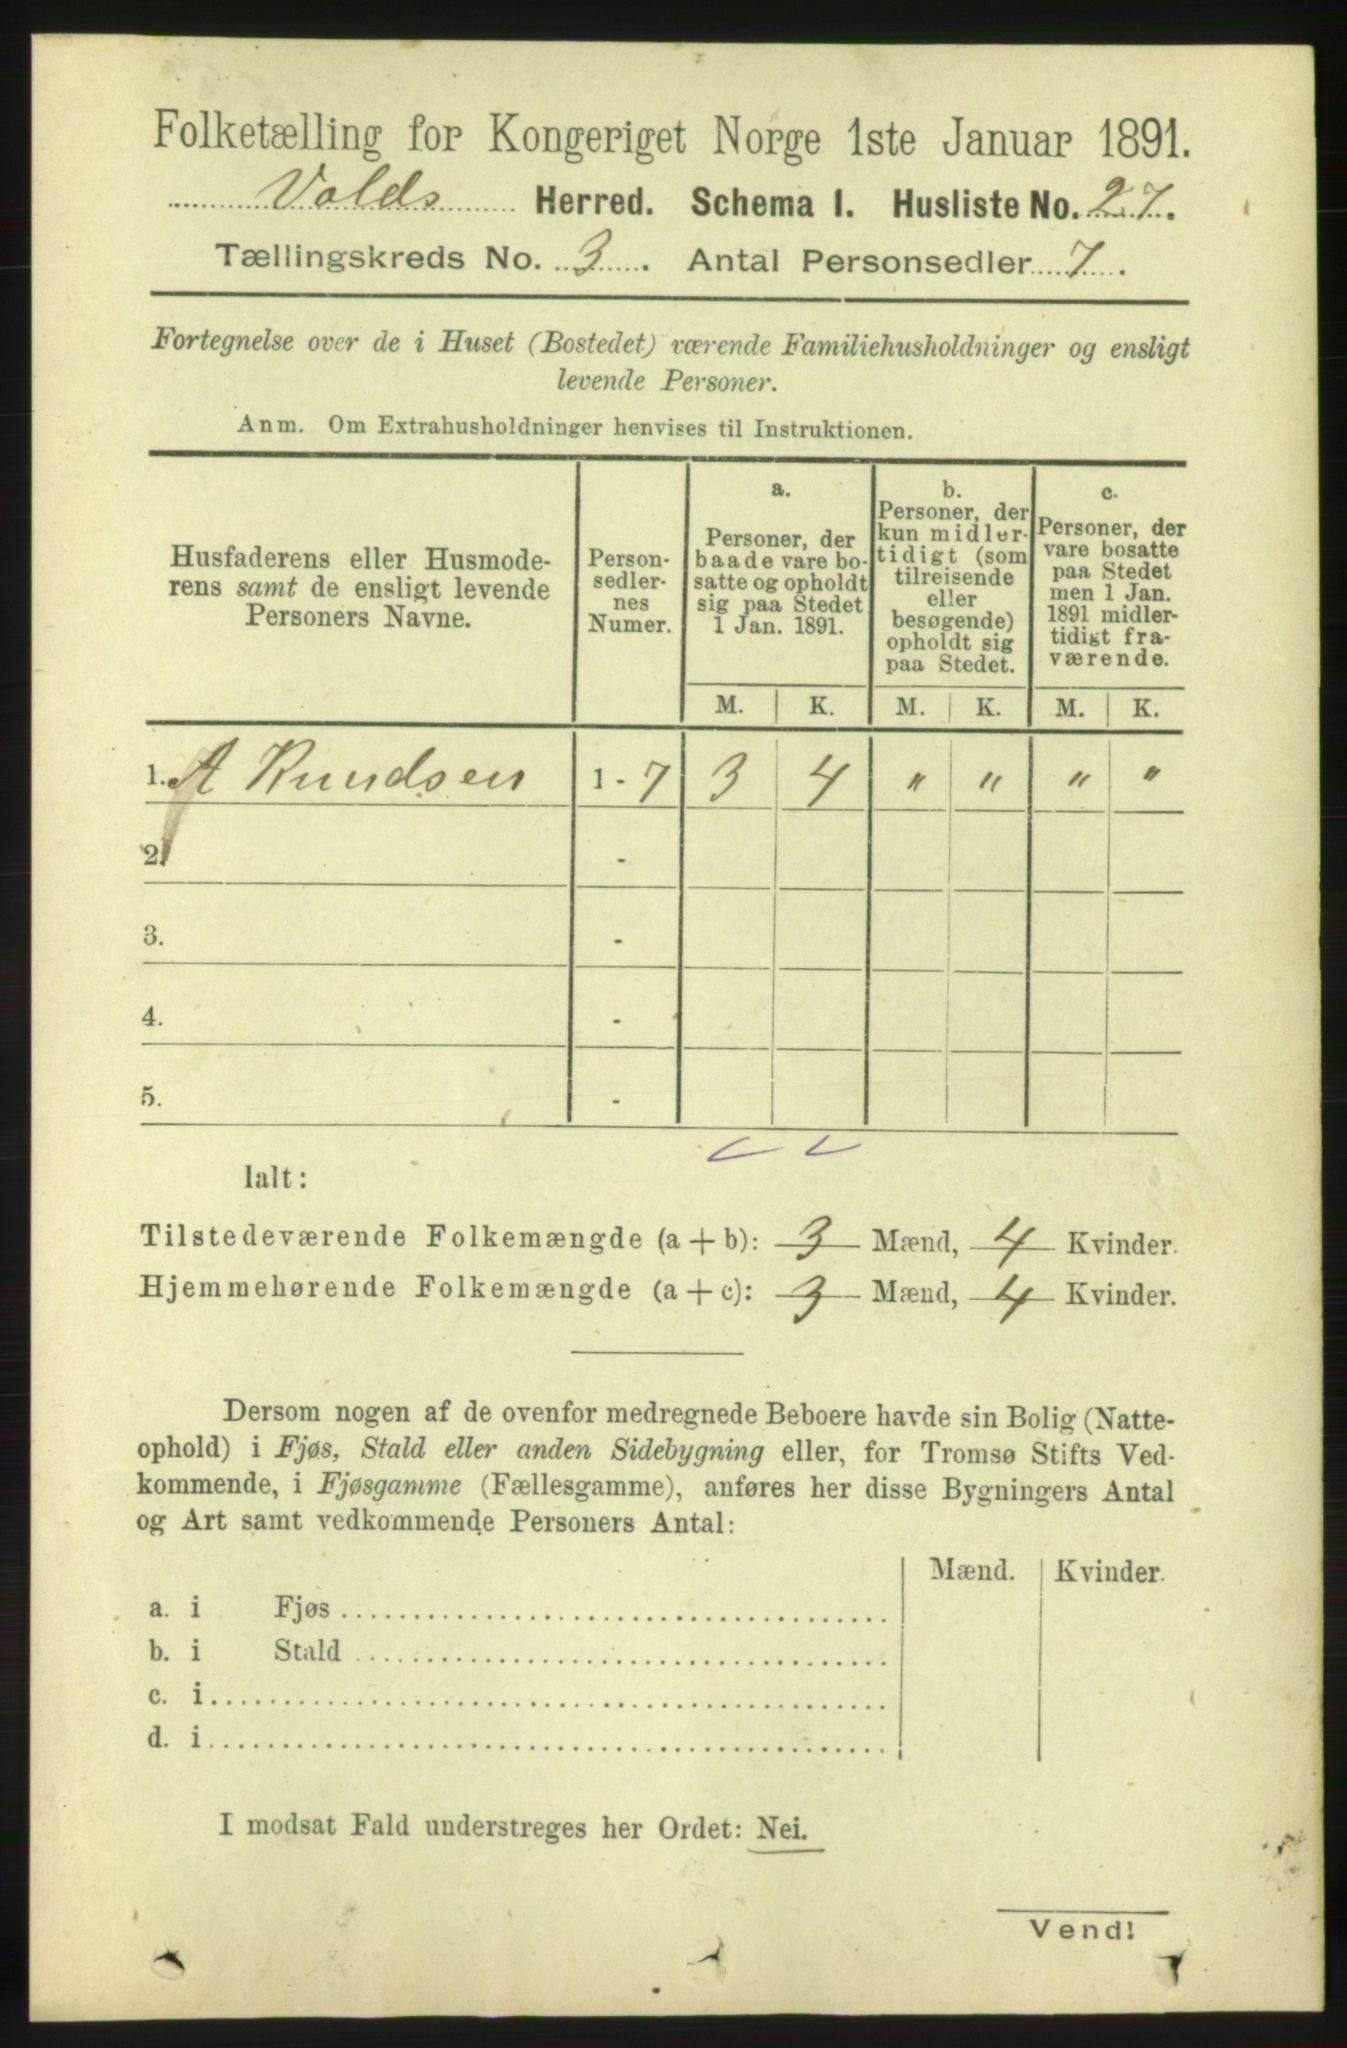 Folketælling for Kongeriget Norge 1ste Januar 1891.
Volds Herred. Schema 1. Husliste No. 27.
Tællingskreds No. 3. Antal Personsedler 7.
Fortegnelse over de i Huset (Bostedet) værende Familiehusholdninger og ensligt
levende Personer.
Anm. Om Extrahusholdninger henvises til Instruktionen.
Husfaderens eller Husmode-
rens samt de ensligt levende
Personers Navne.
Person-
sedler-
nes
Numer.
a.
Personer, der
baade vare bo-
satte og opholdt
sig paa Stedet
1 Jan. 1891.
b.
Personer, der
kun midler-
tidigt (som
tilreisende
eller
besøgende)
opholdt sig
paa Stedet.
c.
Personer, der
vare bosatte
paa Stedet
men 1 Jan.
1891 midler-
tidigt fra-
værende.
M. K. M. K. M. K.
1. A Knudsen 1 - 7 3 4 " " " "
2. -
3. -
4. -
5. -
Ialt:
Tilstedeværende Folkemængde (a + b): 3 Mænd, 4 Kvinder.
Hjemmehørende Folkemængde (a + c): 3 Mænd, 4 Kvinder.
Dersom nogen af de ovenfor medregnede Beboere havde sin Bolig (Natte-
ophold) i Fjøs, Stald eller anden Sidebygning eller, for Tromsø Stifts Ved-
kommende, i Fjøsgamme (Fællesgamme), anføres her disse Bygningers Antal
og Art samt vedkommende Personers Antal:
Mænd. Kvinder.
a. i Fjøs
b. i Stald
c. i
d. i
I modsat Fald understreges her Ordet: Nei.
Vend!